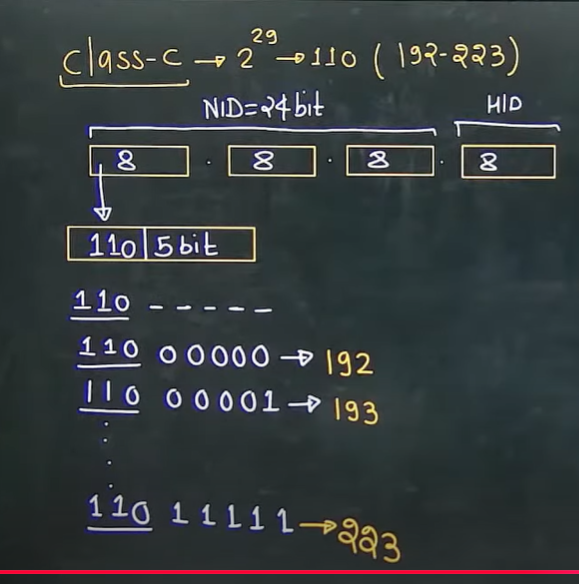 class-c → 2^29 → 110 (192-223)
NID=24 bit HID
8 . 8 . 8 . 8
110|5 bit
110 - - - - -
110 00000 → 192
110 00001 → 193
110 11111 → 223